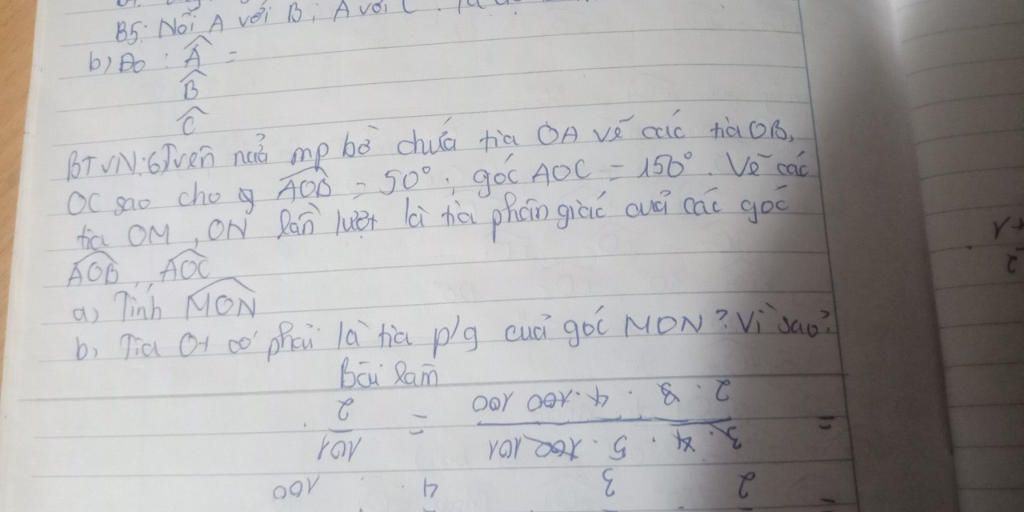 B5: Nối A với B; A với C
b) Đo: Â =
B̂
Ĉ
BTVN: 6) Trên nửa mp bờ chứa tia OA vẽ các tia OB,
OC sao cho AOB = 50°; góc AOC = 150°. Vẽ các
tia OM, ON lần lượt là tia phân giác của các góc
AOB, AOC
a) Tính MON
b, Tia OB có phải là tia p/g của góc MON? Vì sao?
Bài làm
= 3.4.5.100 101 / 2.3.4.100 100 = 101 / 2
2 3 4 100